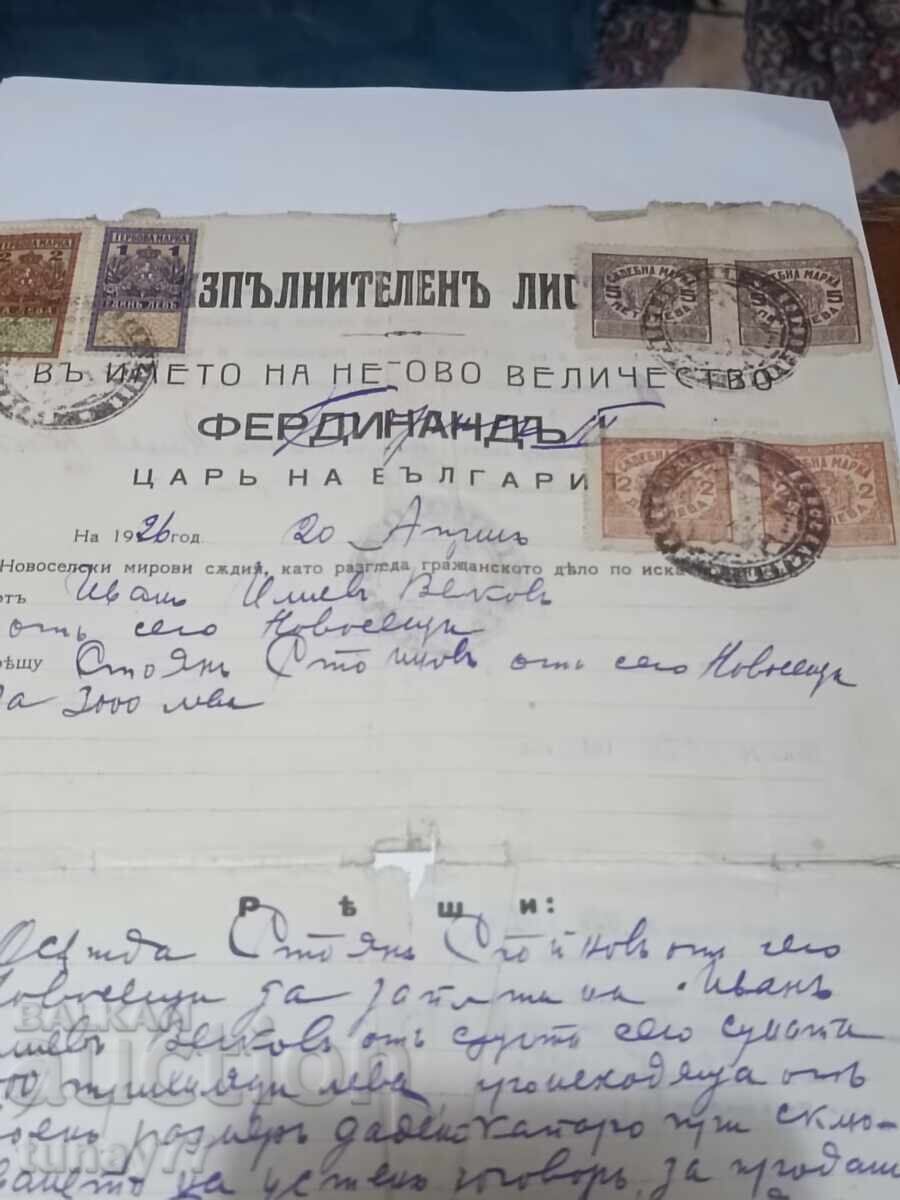 ГЕРБОВА МАРКА
2 2
ЛЕВА
ГЕРБОВА МАРКА
1 1
ЕДИНЪ ЛЕВЪ
СѪДЕБНА МАРКА
5 5
ПЕТ ЛЕВА
СѪДЕБНА МАРКА
5
ЛЕВА
ЗПЪЛНИТЕЛЕНЪ ЛИС
ВЪ ИМЕТО НА НЕГОВО ВЕЛИЧЕСТВО
ФЕРДИНАНДЪ
ЦАРЬ НА БЪЛГАРИ
СѪДЕБНА МАРКА
2 2
ЛЕВА
СѪДЕБНА МАРКА
2 2
ЛЕВА
На 1926 год. 20 Априлъ
Новоселски мирови сѫдия, като разгледа гражданското дѣло по иска
отъ Иванъ Илиевъ Велковъ
отъ село Новосельци
рѣщу Стоянъ Стоиновъ отъ село Новосельци
за 3000 лева
Рѣши:
Осѫжда Стоянъ Стойновъ отъ село
Новосельци да заплати на Иванъ
Илиевъ Велковъ отъ сѫщто село сумата
три хиляди лева произходяща отъ
размѣръ даденъ капаро при склю-
ването на устенъ договоръ за продаж
BALKAN
auction
tunay71